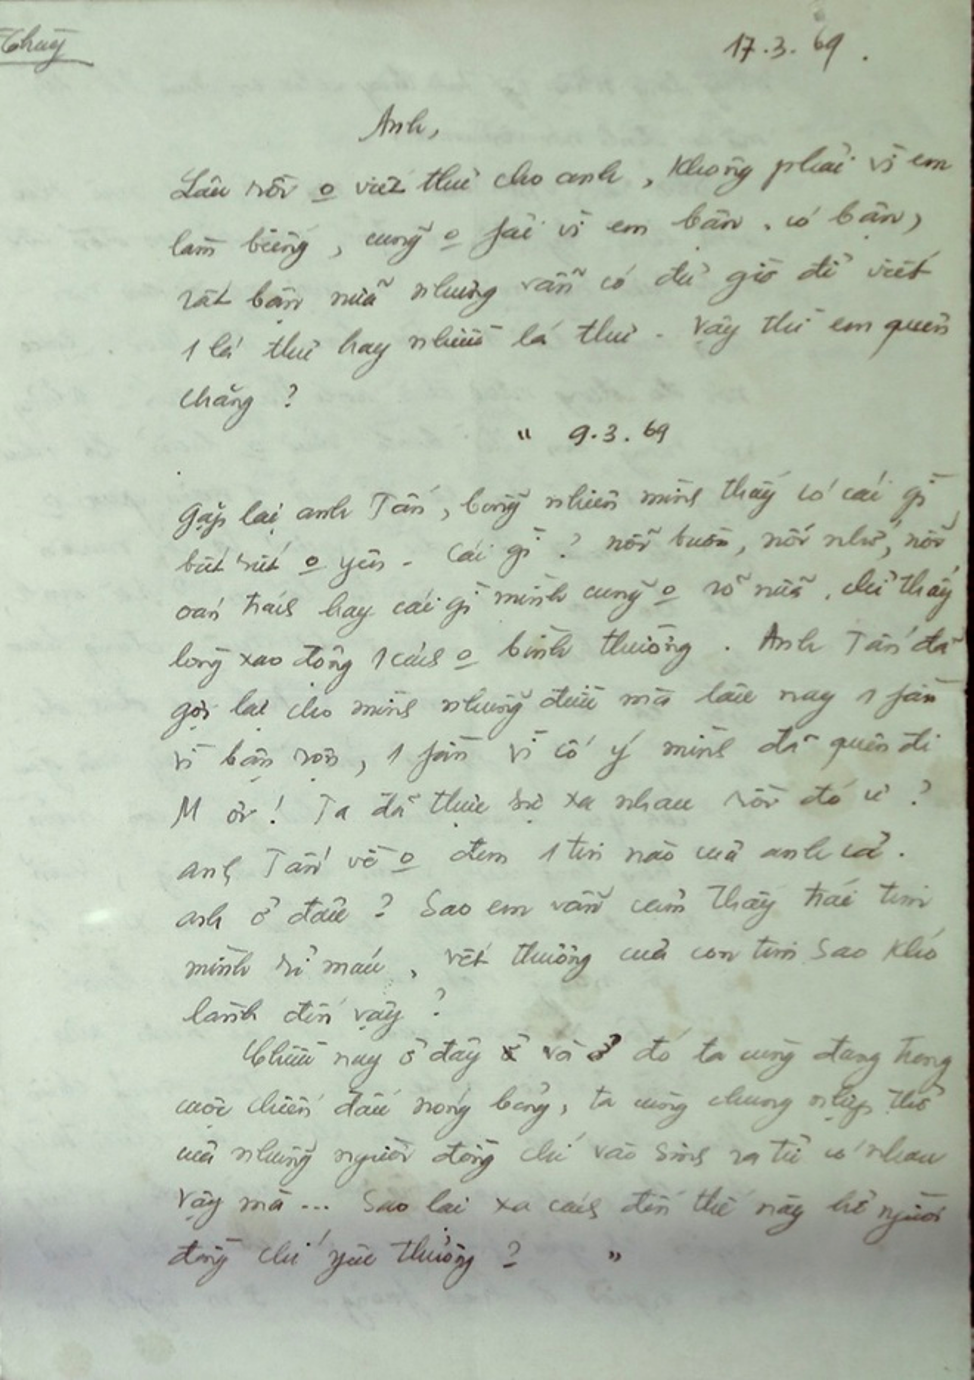 Thùy
17.3.69.
Anh,
Lâu rồi o viết thư cho anh, không phải vì em
làm biếng, cũng o fải vì em bận. có bận,
rất bận nữa nhưng vẫn có đủ giờ để viết
1 lá thư hay nhiều lá thư. Vậy thì em quên
chăng?
" 9.3.69
Gặp lại anh Tấn, bỗng nhiên mình thấy có cái gì
bứt rứt o yên. Cái gì? nỗi buồn, nỗi nhớ, nỗi
oán trách hay cái gì mình cũng o rõ nữa. chỉ thấy
lòng xao động 1 cách o bình thường. Anh Tấn đã
gợi lại cho mình những điều mà lâu nay 1 fần
vì bận rộn, 1 fần vì cố ý mình đã quên đi
M ơi! Ta đã thực sự xa nhau rồi đó ư?
anh Tấn về o đem 1 tin nào của anh cả.
anh ở đâu? Sao em vẫn cảm thấy trái tim
mình rỉ máu, vết thương của con tim sao khó
lành đến vậy?
Chiều nay ở đây và ở đó ta cùng đang trong
cuộc chiến đấu nóng bỏng, ta cùng chung nhịp thở
của những người đồng chí vào sinh ra tử có nhau
vậy mà... Sao lại xa cách đến thế này hở người
đồng chí yêu thương? "